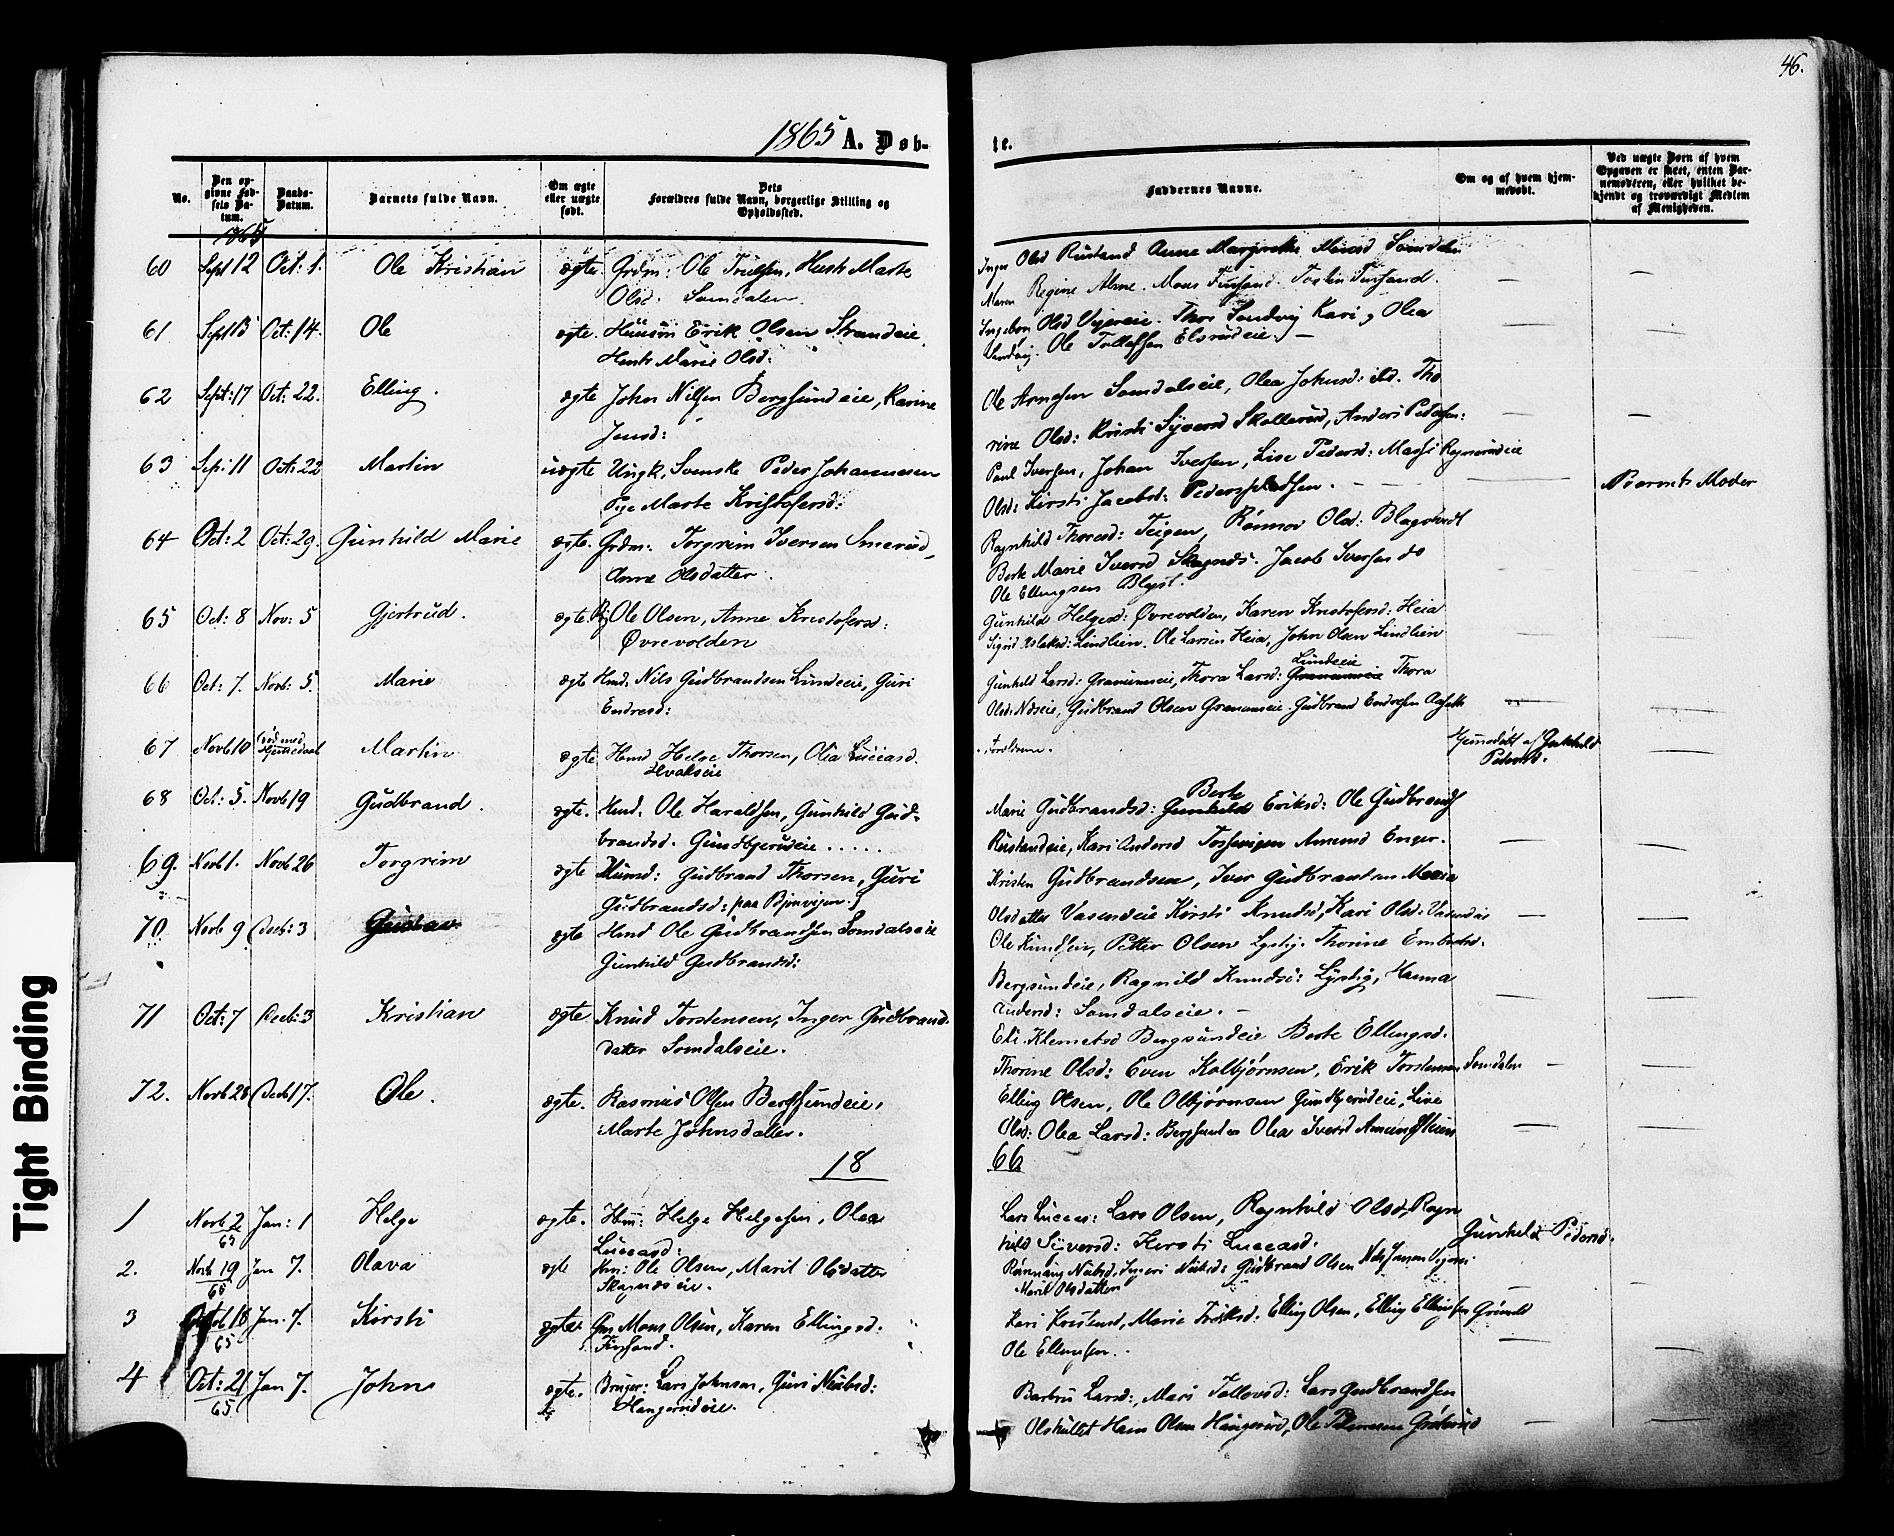 46.
1865 A. Døb-
te.
No.
Den op-
givne Fød-
sels Da-
tum.
Daabs-
Datum.
Barnets fulde Navn.
Om ægte
eller uægte
født.
Dets
Forældres fulde Navn, borgerlige Stilling og
Opholdssted.
Faddernes Navne.
Om og af hvem hjem-
medøbt.
Ved uægte Børn af hvem
Opgaven er skeet, enten Bar-
nemoderen, eller hvilket be-
kjendt og troværdigt Medlem
af Menigheden.
1865
60 Sept 12 Oct: 1. Ole Kristian ægte. Grdm: Ole Trulsen, Hustr Marte
Olsd. Somdalen.
Inger Olsd Rustand Anne Margrethe Somdalen
Maren Regine Alme. Mons Finsand. Torsten Finsand.
61 Sept 15 Oct: 14. Ole ægte. Huusm Erik Olsen Strandeie.
Hustr Marie Olsd:
Ingebor Olsd Vegereie. Thor Sandvig Kari, Olea
Sandvig. Ole Tollefsen Elsrudeie. —
62 Sept: 17 Oct: 22. Elling. ægte John Nilsen Bergsundeie, Karine
Jensd:
Ole Arnesen Somdalseie, Olea Johnsd: ibd. Tho
rine Olsd: Kristi Syversd Skollerud, Anders Pedersen:
63 Sep: 11 Oct: 22 Martin uægte Ungk, Svenske Peder Johannesen
Pige Marte Kristofersd:
Paul Iversen, Johan Iversen, Lise Pedersd: Mari Ragnerudeie
Olsd: Kirsti Jacobsd: Pedersplassen.
Barnets Moder
64 Oct: 2 Oct: 29. Gunhild Marie ægte. Grdm: Torgrim Iversen Smerud,
Anne Olsdatter.
Ragnhild Thoresd: Teigen, Rønnov Olsd: Blagstvedt
Berte Marie Iversd Skagnæs. Jacob Iversen do
Ole Ellingsen Blagst.
65 Oct: 8 Nov: 5 Gjertrud. ægte. Ole Olsen, Anne Kristofersd:
Øvrevolden
Gunhild Helgesd: Øvrevolden, Karen Kristofersd: Heia
Sigrid Aslaksd: Lindlien. Ole Larsen Heia, John Olsen Lindlien
66 Oct: 7. Novb: 5. Marie ægte Hmd. Nils Gudbrandsen Lundeie, Guri
Endresd:
Gunhild Larsd: Granumeie, Thora Larsd: Granumeie Lundeie Thora
Olsd: Næseie, Gudbrand Olsen Granumeie. Gudbrand Endresen
67 Novb 10 Død med
Hjemmedaab Martin ægte Hmd Helge Thorsen, Olia Lucasd.
Hvalseie
Forældrene. Hjemmedøbt af Gunhild
Pedersd.
68 Oct: 5. Novb 19 Gudbrand. ægte. Hmd: Ole Haraldsen, Gunhild Gud-
brandsd. Gunhjerudeie .....
Marie Gudbrandsd: Gunhild Berte Eriksd: Ole Gudbrands
Rustandeie, Kari Andersd Tossevigen Amund Enger.
69. Novb 1. Novb 26 Torgrim ægte Huusmd: Gudbrand Thorsen, Guri
Gudbrandsd: paa Bjønvigen.
Kristen Gudbrandsen, Iver Gudbrandsen Maria
Olsdatter Vasendeie Kirsti Knudsd, Kari Olsd: Vasendeie
70. Novb 9 Decb: 3 Gustav ægte Hmd Ole Gudbrandsen Somdalseie
Gunhild Gudbrandsd:
Ole Lundlein, Petter Olsen Lystig. Thorine Embretsd.
Bergsundeie, Ragnild Knudsd: Lystig, Hanna
Andersd: Somdalseie. —
71 Oct: 7 Decb: 3 Kristian ægte Knud Torstensen, Inger Gudbrand-
datter Somdalseie.
Eli Klemetsd Bergsundeie Berte Ellingsd.
Thorine Olsd: Even Kolbjørnsen, Erik Torstensen Somdalen
72. Novb 28 Decb 17. Ole. ægte. Rasmus Olsen Bergsundeie,
Marte Johnsdatter.
Elling Olsen, Ole Olbjørnsen Gunhjerudeie, Live
Olsd: Olea Larsd: Bergsundeie Olea Iversd
18
66
1 Novb 2
65 Jan: 1 Helge ægte. Hm: Helge Helgesen, Olea
Lucasd:
Lars Lucas: Lars Olsen, Ragnhild Olsd, Ragn
hild Syversd: Kirsti Lucasd.
Gunhild Pedersd.
2. Novb 19
65 Jan 7. Olava ægte Hm: Ole Olsen, Marit Olsdatter
Skagnæseie.
Rønnaug Nubsd, Ingeri Nubsd: Gudbrand Olsen Nils Jensen
Marit Olsdatter
3 Octob 18
65 Jan. 7. Kirsti ægte Gm Mons Olsen, Karen Ellingsd:
Finsand.
Kari Kristensd, Marie Eriksd: Elling Olsen, Elling Ellingsen Grimeli
Ole Ellensen.
4 Oct: 21
65 Jan 7. John ægte. Bruger: Lars Johnsen, Guri Neubsd:
Haugerudeie.
Barbru Larsd:, Mari Tollevsd: Lars Gudbrandsen
Olshullet Hans Olsen Haugerud, Ole Grøterud
Tight Binding